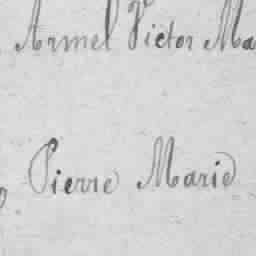 Armel Victor Ma
Pierre Marie